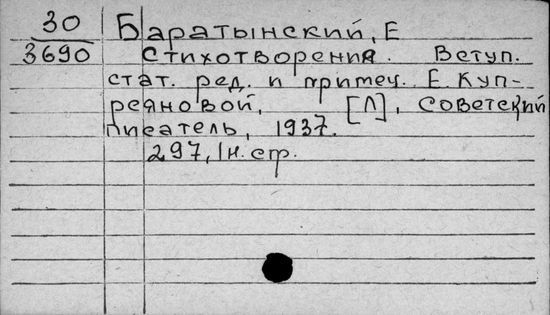 30 Баратынский, Е
3690 Стихотворения. Вступ.
стат. ред. и примеч. Е. Куп-
реяновой, [Л], Советский
писатель, 1937.
297, 1н. стр.